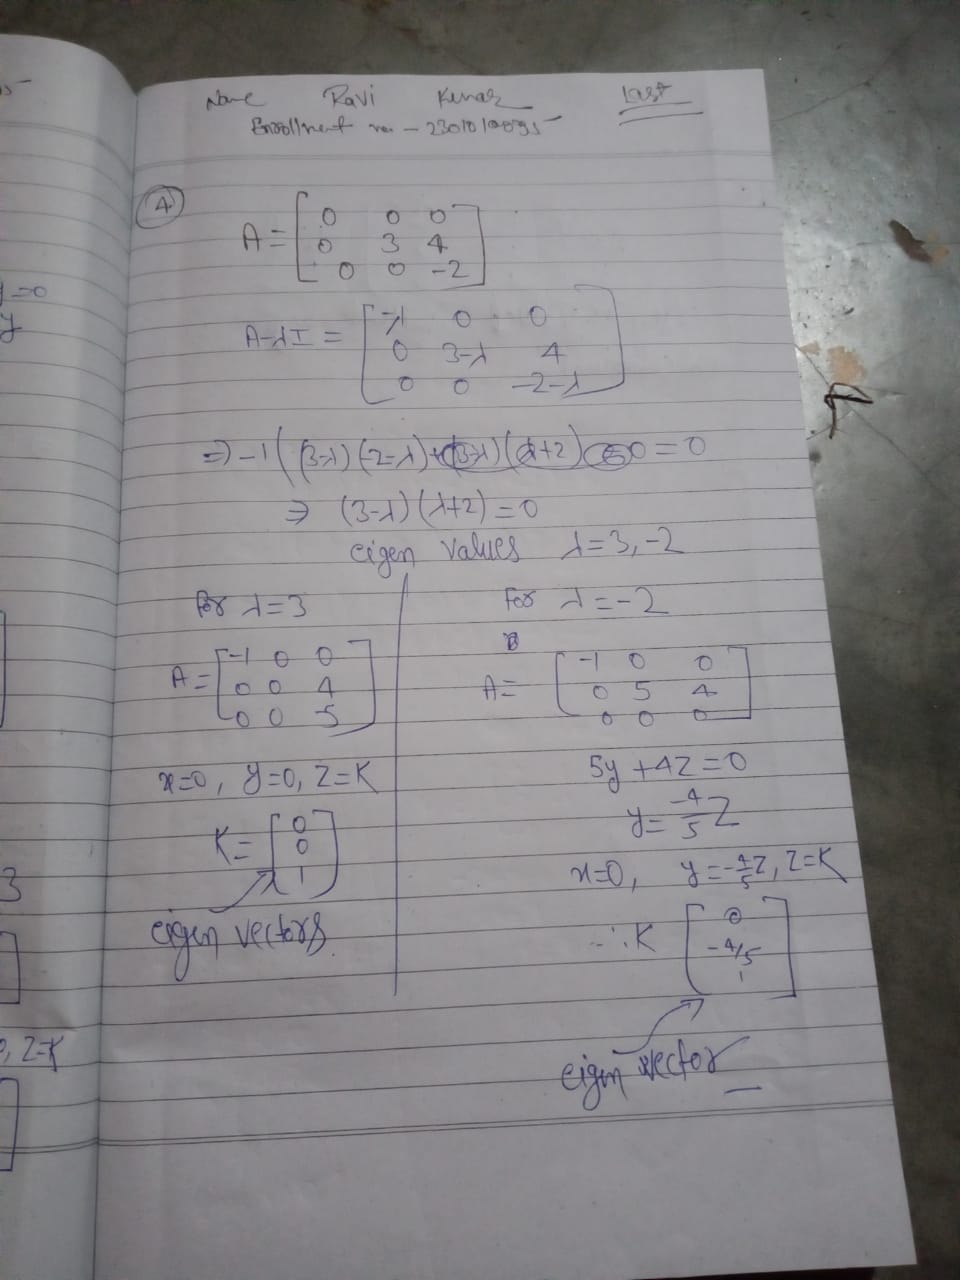 Name Ravi Kumar Last
Enrollment no. -
4
A = [0 0 0
0 3 4
0 0 -2]
A-λI = [-λ 0 0
0 3-λ 4
0 0 -2-λ]
⇒ -1 ((3-λ)(2-λ) = 0
⇒ (3-λ)(λ+2) = 0
eigen values λ=3, -2
for λ=3
A = [-1 0 0
0 0 4
0 0 5]
x=0, y=0, Z=K
K = [0
0
1]
eigen vectors
For λ=-2
A= [-1 0 0
0 5 4
0 0 0]
5y + 4Z = 0
y = -4/5 Z
x=0, y=-4/5 Z, Z=K
∴ K [0
-4/5
1]
eigen vector
y=0
y
3
Z=K